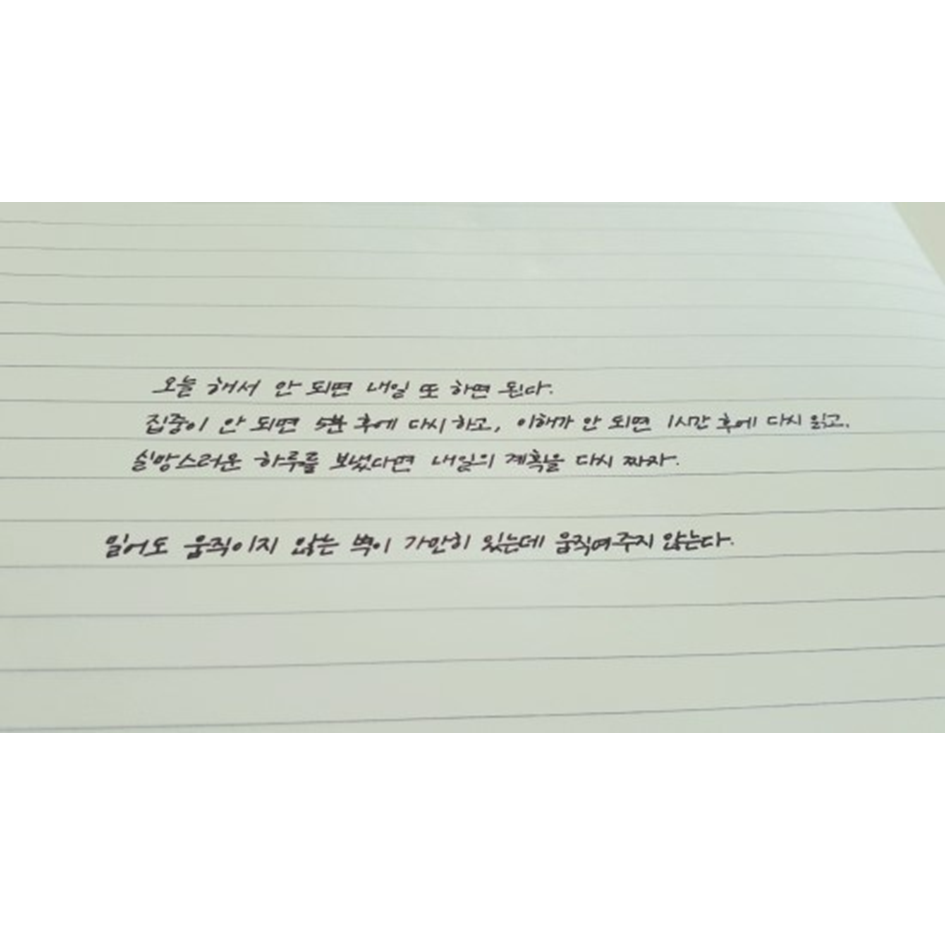 오늘 해서 안 되면 내일 또 하면 된다.
집중이 안 되면 5분 후에 다시 하고, 이해가 안 되면 1시간 후에 다시 읽고,
실망스러운 하루를 보냈다면 내일의 계획을 다시 짜자.
밀어도 움직이지 않는 벽이 가만히 있는데 움직여주지 않는다.